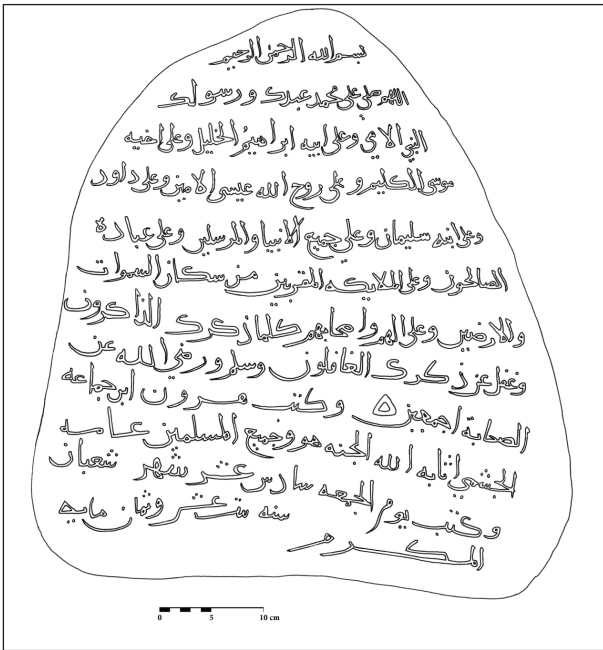 بسم الله الرحمن الرحيم
اللهم صلي على محمد عبدك ورسولك
النبي الامي وعلى ابيه ابراهيم الخليل وعلى اخيه
موسى الكليم وعلى روح الله عيسى الامين وعلى داود
وعلى ابنه سليمان وعلى جميع الانبيا والمرسلين وعلى عباده
الصالحون وعلى الملايكه المقربين من سكان السموات
والارضين وعلى الهم واصحابهم كلما ذكرك الذاكرون
وغفل عن ذكرك الغافلون وسلم ورضي الله عن
الصحابة اجمعين وكتب هرون ابن جماعه
الخشي اثابه الله الجنه هو وجميع المسلمين عامه
وكتب يوم الجمعه سادس عشر شهر شعبان
المكرم سنه ست عشر وثمان مايه
0 5 10 cm